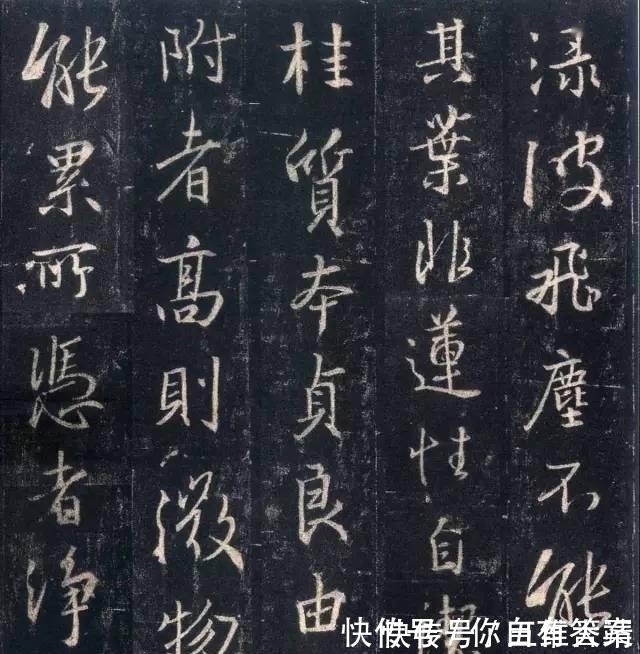 渌波飛塵不能
其葉非蓮性自潔
桂質本貞良由
附者高則微物
能累所憑者淨
快传号